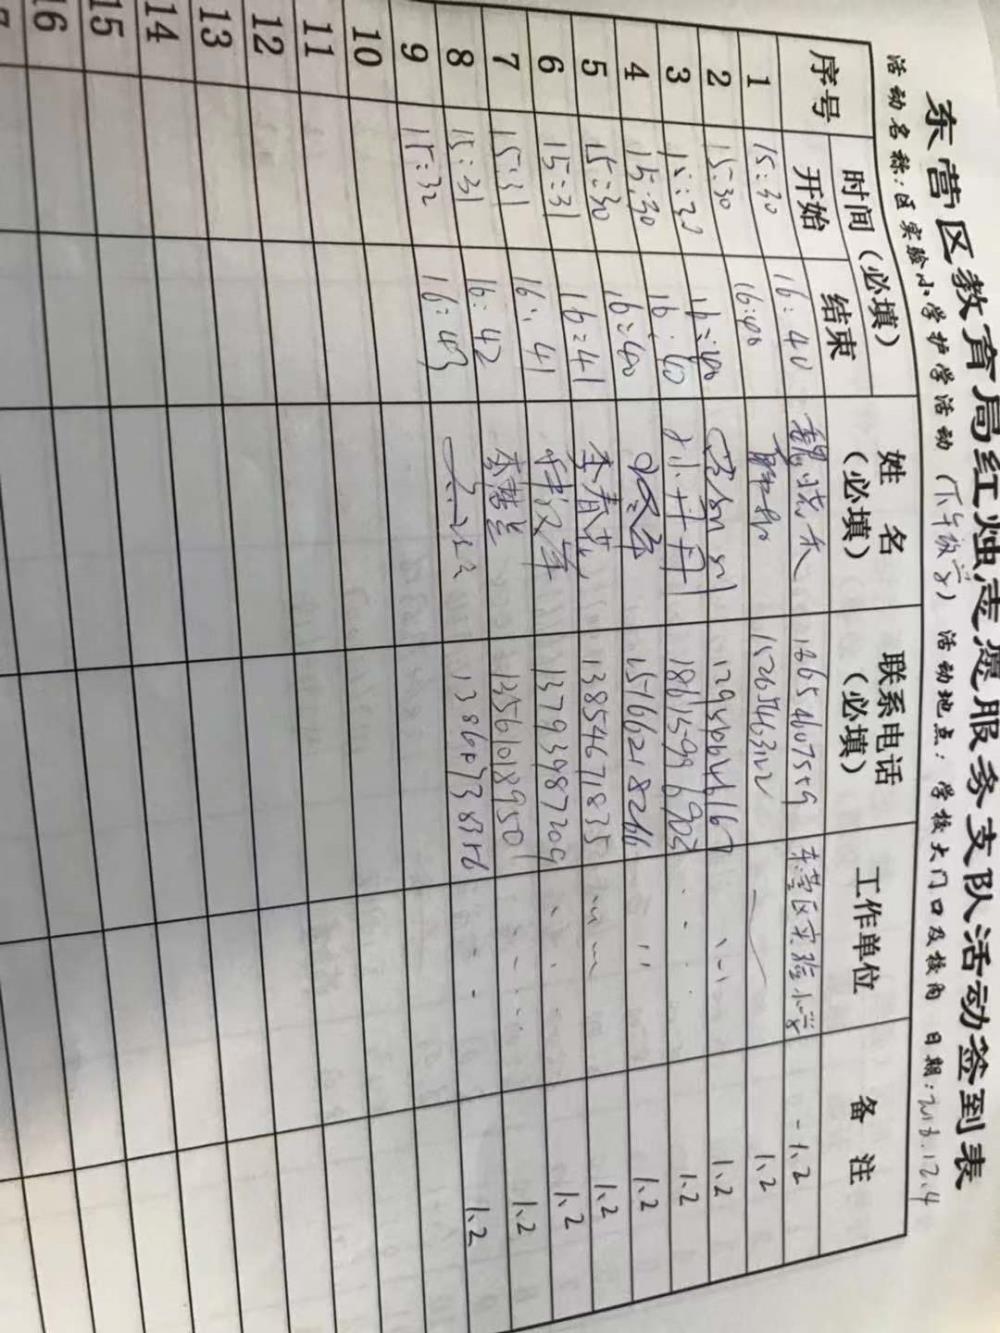 东营区教育局红烛志愿服务支队活动签到表
活动名称:区实验小学护学活动(下午放学) 活动地点:学校大门口及校内 日期:2018.12.4
序号 时间(必填) 姓名(必填) 联系电话(必填) 工作单位 备注
开始 结束
1 15:30 16:40 魏晓天 18654607559 东营区实验小学 1.2
2 15:30 16:40 15265463122 1.2
3 15:30 16:40 1.2
4 15:30 16:40 孙丹丹 18615996903 1.2
5 15:30 16:40 15766218266 1.2
6 15:31 16:41 李春花 13854671835 1.2
7 15:31 16:41 13793987209 1.2
8 15:31 16:42 李慧兰 13561018950 1.2
9 15:32 16:43 1.2
10
11
12
13
14
15
16